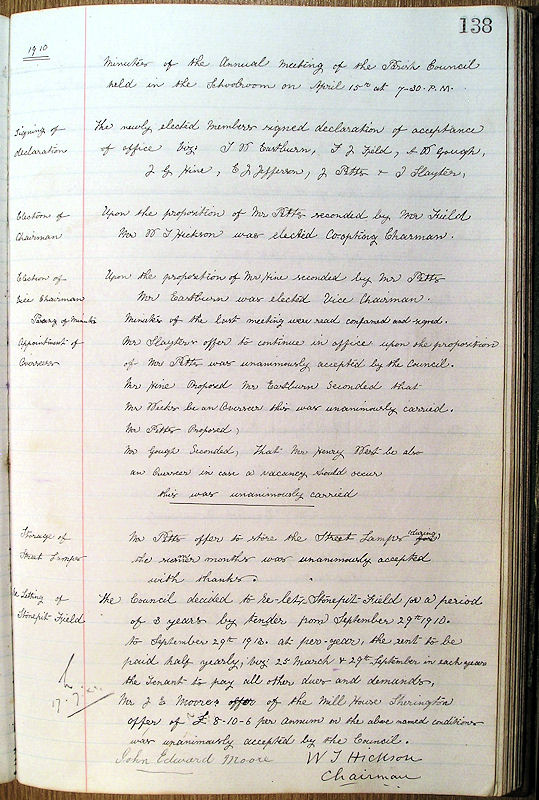 138
1910
Minutes of the Annual Meeting of the Parish Council
held in the Schoolroom on April 15th at 7-30. P.M.
Signing of
declaration
The newly elected Members signed declaration of acceptance
of office viz: T W Eastburn, F J Field, A W Gough,
J G Hine, E J Jefferson, J Pitts & J Slayter,
Election of
Chairman
Upon the proposition of Mr Pitts seconded by Mr Field
Mr W J Hickson was elected Co-opting Chairman.
Election of
Vice Chairman
Upon the proposition of Mr Hine seconded by Mr Pitts
Mr Eastburn was elected Vice Chairman.
Passing of Minutes
Minutes of the last meeting were read confirmed and signed.
Appointment of
Overseers
Mr Slayters offer to continue in office upon the proposition
of Mr Pitts was unanimously accepted by the Council.
Mr Hine Proposed Mr Eastburn Seconded that
Mr Weeks be an Overseer this was unanimously carried.
Mr Pitts Proposed,
Mr Gough Seconded, That Mr Henry West be also
an Overseer in case a vacancy should occur
this was unanimously carried
Storage of
Street Lamps
Mr Pitts offer to store the Street Lamps during
the summer months was unanimously accepted
with thanks.
Re Letting of
Stonepit Field
The Council decided to Re-let Stonepit Field for a period
of 3 years by tender from September 29th 1910.
to September 29th 1913. at per-year, the rent to be
paid half yearly, viz 25 March & 29th September in each year
the Tenant to pay all other dues and demands,
Mr J E Moores offer of the Mill House Sherington
offer of £8-10-6 per annum on the above named conditions
was unanimously accepted by the Council.
John Edward Moore
W J Hickson
Chairman